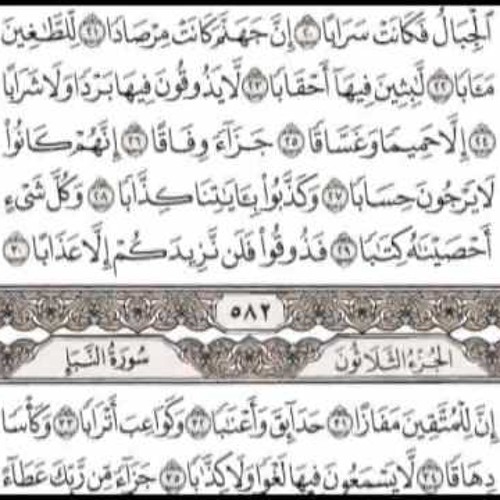 ٱلْجِبَالُ فَكَانَتْ سَرَابًا ٢٠ إِنَّ جَهَنَّمَ كَانَتْ مِرْصَادًا ٢١ لِّلطَّٰغِينَ
مَـَٔابًا ٢٢ لَّٰبِثِينَ فِيهَآ أَحْقَابًا ٢٣ لَّا يَذُوقُونَ فِيهَا بَرْدًا وَلَا شَرَابًا
٢٤ إِلَّا حَمِيمًا وَغَسَّاقًا ٢٥ جَزَآءً وِفَاقًا ٢٦ إِنَّهُمْ كَانُوا۟
لَا يَرْجُونَ حِسَابًا ٢٧ وَكَذَّبُوا۟ بِـَٔايَٰتِنَا كِذَّابًا ٢٨ وَكُلَّ شَىْءٍ
أَحْصَيْنَٰهُ كِتَٰبًا ٢٩ فَذُوقُوا۟ فَلَن نَّزِيدَكُمْ إِلَّا عَذَابًا ٣٠
٥٨٢
الجزء الثلاثون سورة النبإ
إِنَّ لِلْمُتَّقِينَ مَفَازًا ٣١ حَدَآئِقَ وَأَعْنَٰبًا ٣٢ وَكَوَاعِبَ أَتْرَابًا ٣٣ وَكَأْسًا
دِهَاقًا ٣٤ لَّا يَسْمَعُونَ فِيهَا لَغْوًا وَلَا كِذَّٰبًا ٣٥ جَزَآءً مِّن رَّبِّكَ عَطَآءً